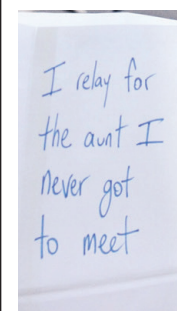 I relay for
the aunt I
never got
to meet